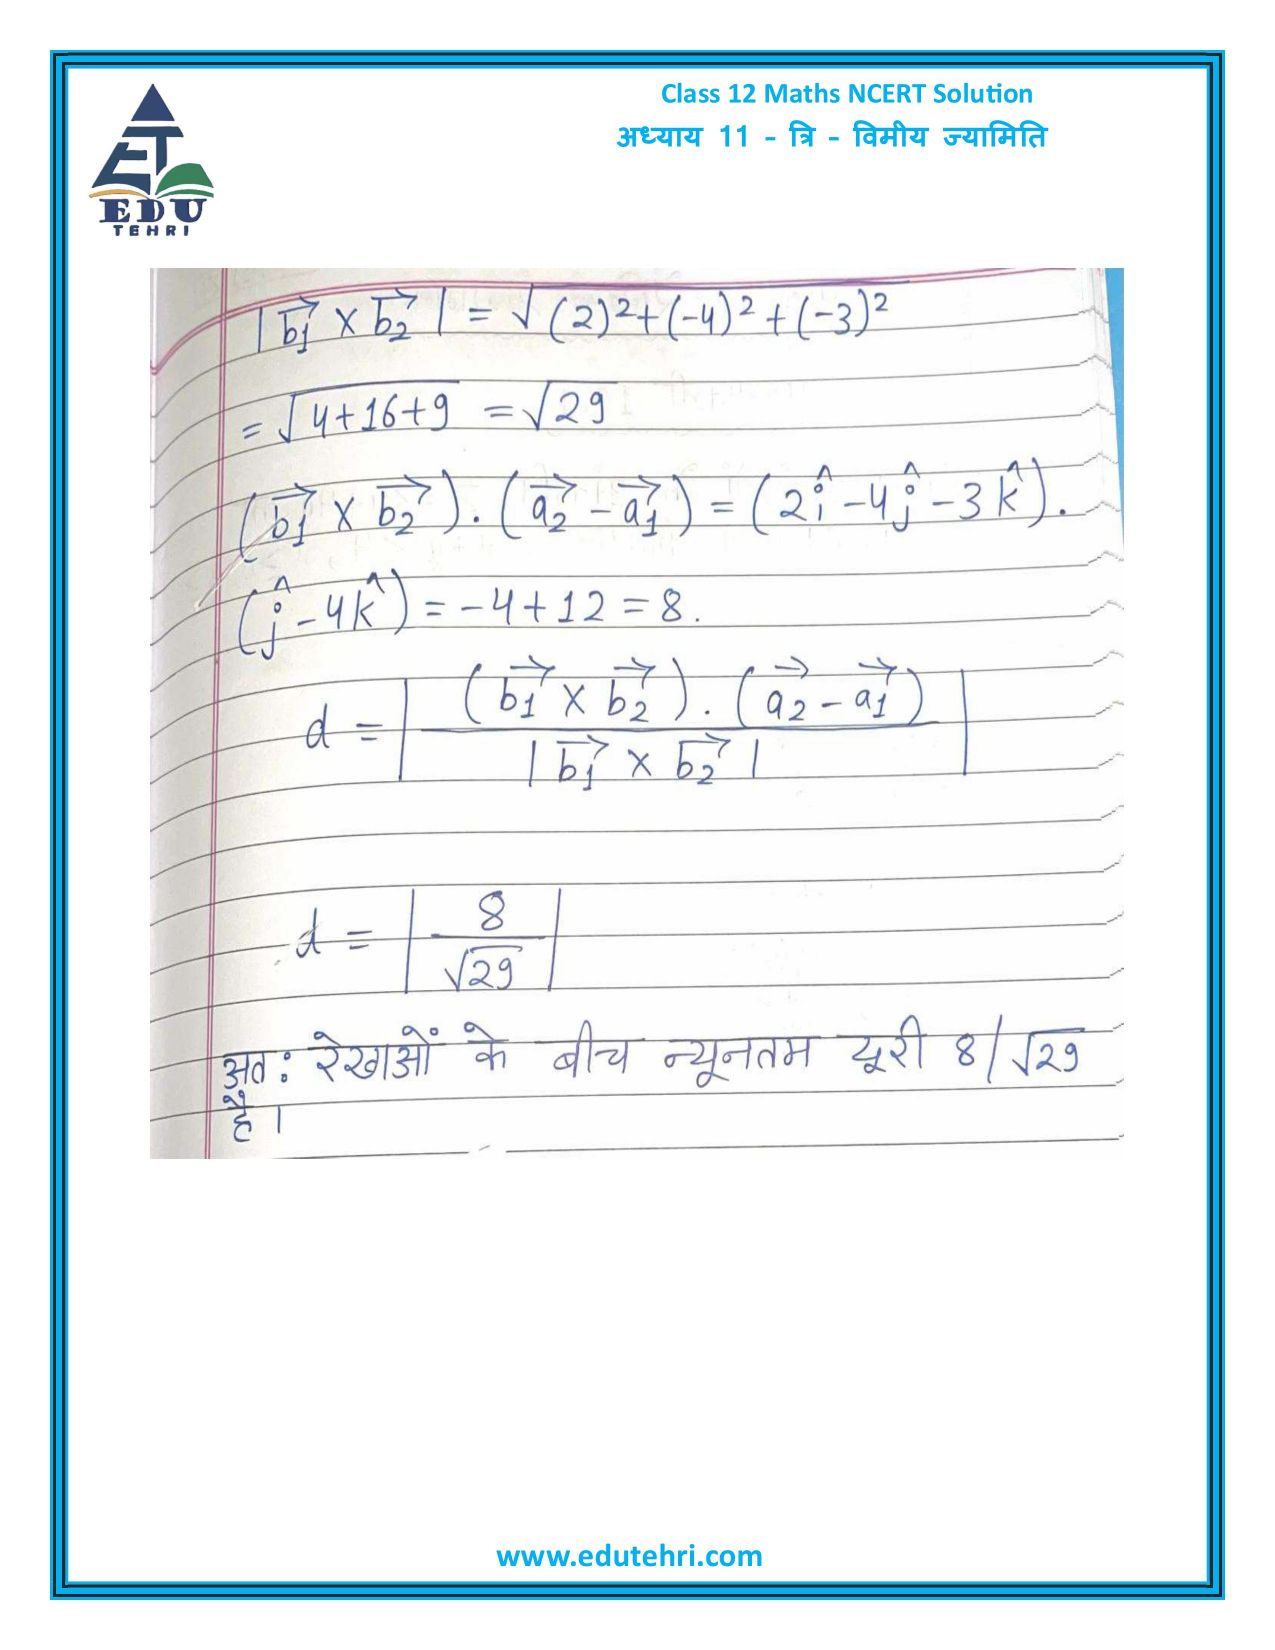 Class 12 Maths NCERT Solution
अध्याय 11 - त्रि - विमीय ज्यामिति
EDU
TEHRI
|b₁→ × b₂→| = √(2)²+(-4)²+(-3)²
= √4+16+9 = √29
(b₁→ × b₂→).(a₂→ - a₁→) = (2î - 4ĵ - 3k̂).
(ĵ - 4k̂) = -4+12 = 8.
d = | (b₁→ × b₂→).(a₂→ - a₁→)
|b₁→ × b₂→| |
d = | 8
√29 |
अत: रेखाओं के बीच न्यूनतम दूरी 8/√29
है।
www.edutehri.com